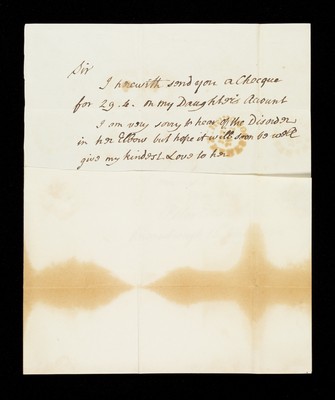 Sir
I herewith send you a Checque
for 29.4. on my Daughter's Acount
I am very sorry to hear of the Disorder
in her Elbow but hope it will soon be well
give my kindest Love to her